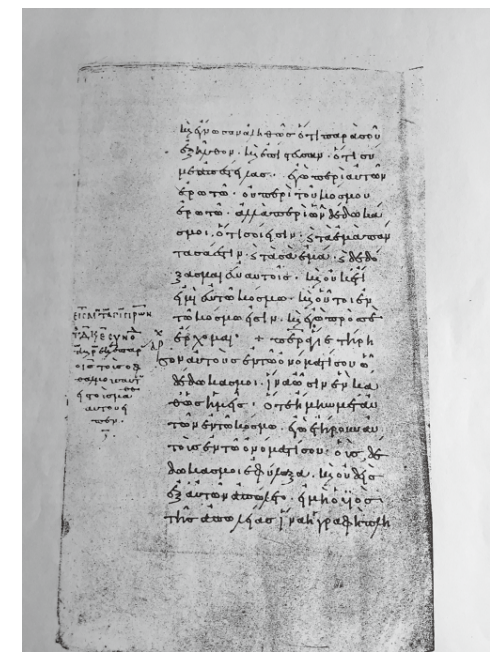 κ̀ ἔγνωσαν ἀληθῶς ὅτι παρὰ σοῦ
ἐξῆλθον· κ̀ ἐπίστευσαν· ὅτι σύ
με ἀπέστειλας· ἐγὼ περὶ αὐτῶν
ἐρωτῶ· οὐ περὶ τοῦ κόσμου
ἐρωτῶ· ἀλλὰ περὶ ὧν δέδωκά
σμοι· ὅτι σοί εἰσιν· ϗ τὰ ἐμὰ πάν
τα σά ἐστιν· ϗ τὰ σὰ ἐμά· ϗ δεδό
ξασμαι ἐν αὐτοῖς· κ̀ οὐκέτι
εἰμὶ ἐν τῶ κόσμω· κ̀ οὗτοι ἐν
τῶ κόσμω εἰσίν· κ̀ ἐγὼ πρὸς σὲ
ἔρχομαι· + περ ἅγιε τήρη
σον αὐτοὺς ἐν τῶ ὀνόματί σου ὧ
δέδωκάς μοι· ἵνα ὦσιν ἓν κα
θὼς ἡμεῖς· ὅτε ἤμην μετ αὐ
τῶν ἐν τῶ κόσμω· ἐγὼ ἐτήρουν αὐ
τοὺς ἐν τῶ ὀνόματί σου· οὓς δέ
δωκάς μοι ἐφύλαξα· κ̀ οὐδεὶς
ἐξ αὐτῶν ἀπώλετο· εἰ μὴ ὁ υἱὸς
τῆς ἀπωλείας ἵνα ἡ γραφὴ πλη